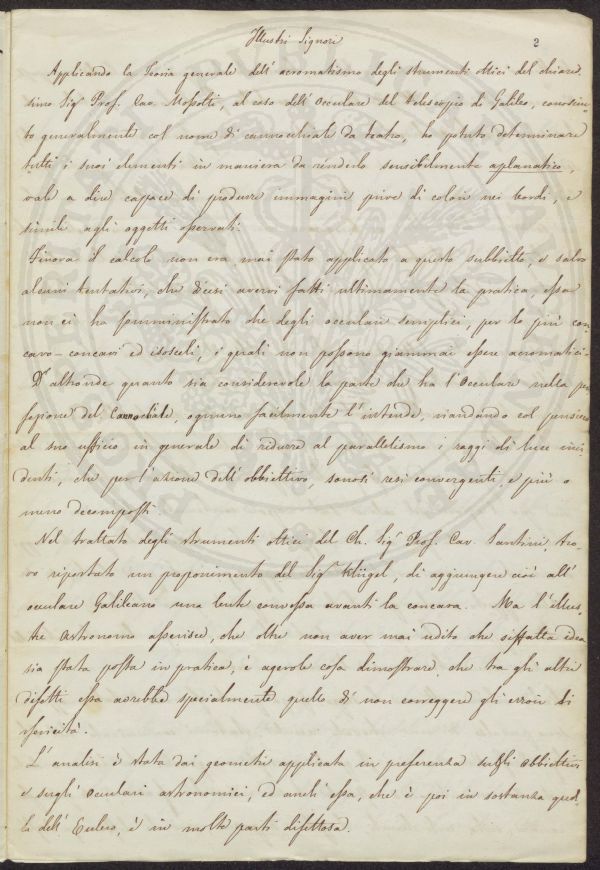 Illustri Signori
2
Applicando la Teoria generale dell' acromatismo degli strumenti ottici del chiaris-
simo Sig.r Prof. Cav. Mossotti, al caso dell' Oculare del telescopio di Galileo, conosciu-
to generalmente col nome di cannocchiale da teatro, ho potuto determinare
tutti i suoi elementi in maniera da renderlo sensibilmente aplanatico,
vale a dire capace di produrre immagini prive di colori nei bordi, e
simile agli oggetti osservati.
Finora il calcolo non era mai stato applicato a questo subbietto, e salvo
alcuni tentativi, che dicesi avervi fatti ultimamente la pratica, essa
non ci ha somministrato che degli oculari semplici, per lo più con-
cavo-concavi ed isosceli, i quali non possono giammai essere acromatici.
D' altronde quanto sia considerevole la parte che ha l' Oculare nella per-
fezione del Cannochiale, ognuno facilmente l' intende, riandando col pensiero
al suo ufficio in generale di ridurre al parallelismo i raggi di luce inci-
denti, che per l' azione dell' obbiettivo, sonosi resi convergenti, e più o
meno decomposti.
Nel trattato degli strumenti ottici del Ch. Sig.r Prof. Cav. Santini tro-
vo riportato un proponimento del Sig.r Klügel, di aggiungere cioè all'
oculare Galileano una lente convessa avanti la concava. Ma l' illus-
tre Astronomo asserisce, che oltre non aver mai udito che siffatta idea
sia stata posta in pratica, è agevole cosa dimostrare, che tra gli altri
difetti essa avrebbe specialmente quello di non correggere gli errori di
sfericità.
L' analisi è stata dai geometri applicata in preferenza sugli obbiettivi
e sugl' Oculari astronomici, ed anch' essa, che è poi in sostanza quel-
la dell' Eulero, è in molte parti difettosa.